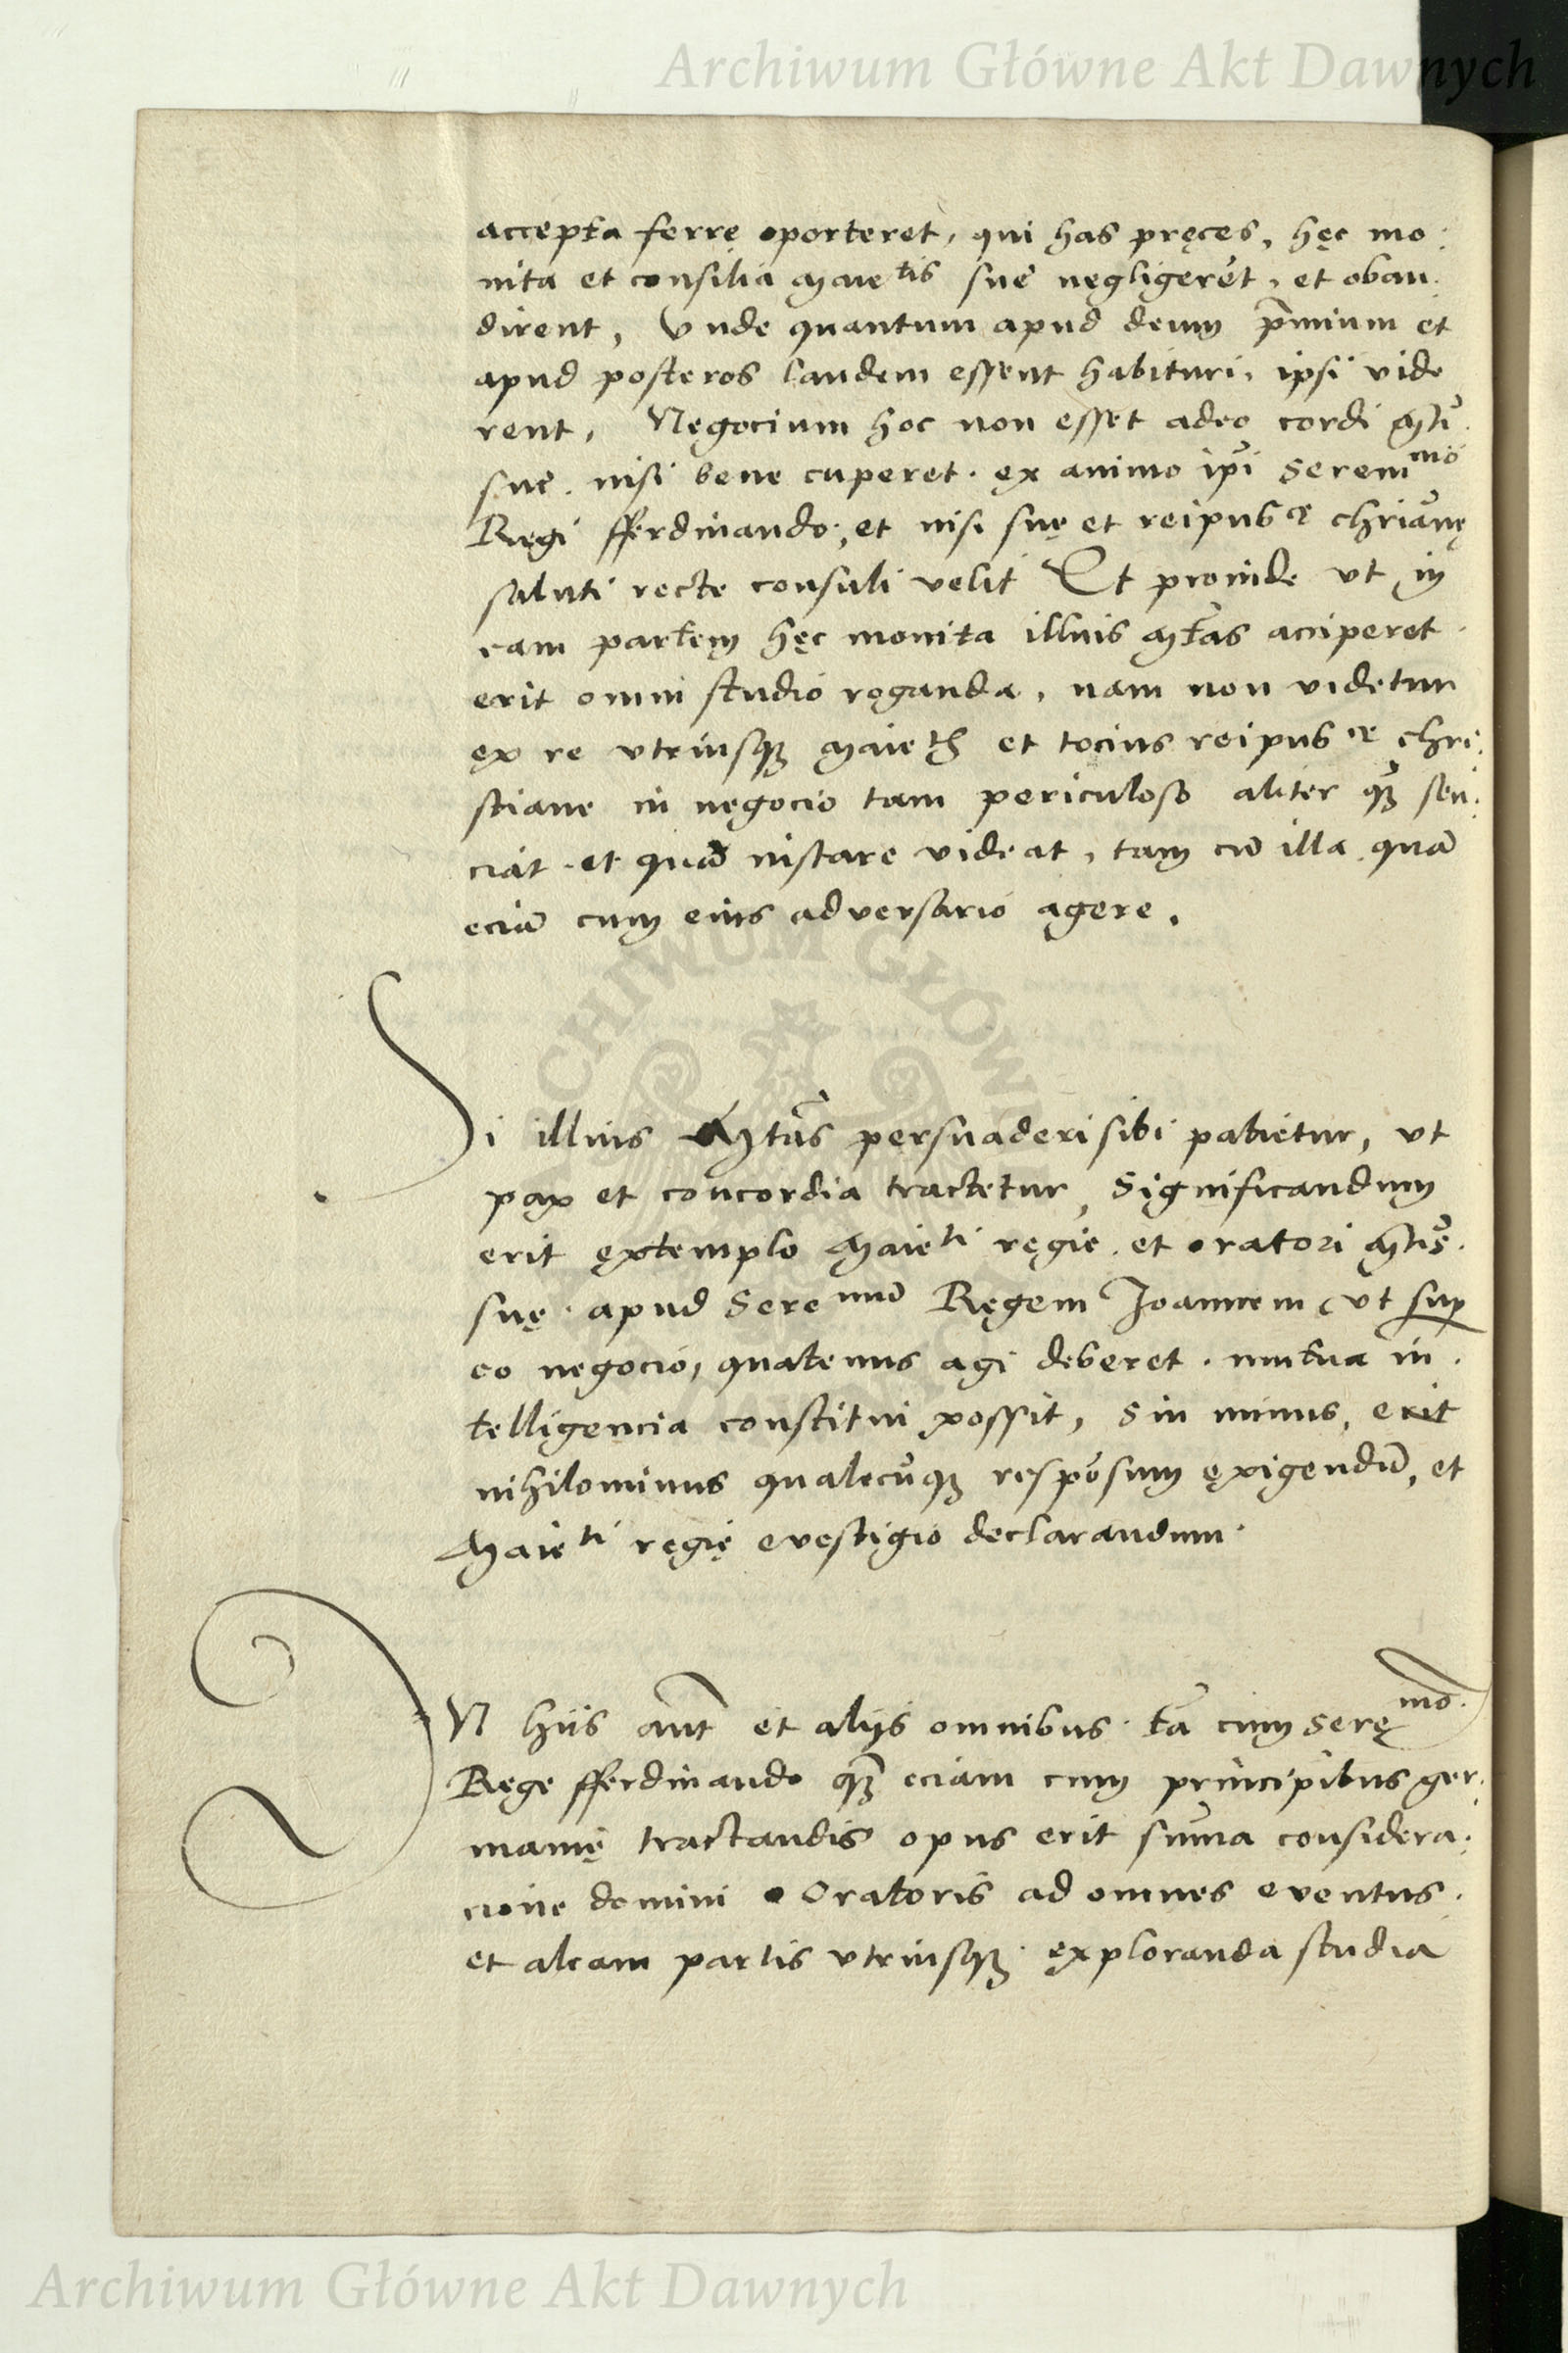 Archiwum Główne Akt Dawnych
accepta ferrę oporteret, qui has pręces, hęc mo:
nita et consilia Maietis suę negligerēt, et obau:
dirent, Vnde quantum apud deum p̄mium et
apud posteros laudem essent habituri, ipsi vide
rent, Negocium hoc non esset adeo cordi Mti
suę. nisi bene cuperet. ex animo ip̄i Serenmo
Regi fferdinando, et nisi suę et reipubce chrianę
saluti recte consuli velit Et proinde vt in
eam partem hęc monita illius Mtas acciperet
erit omni studio roganda, nam non videtur
ex re vtriusqꝫ Maietis et tocius reipubce chri:
stiane in negocio tam periculoso aliter qꝫ sen:
ciat et quā instare videat, tam cū illa quā
eciā cum eius adversario agere.
Si illius Mtas persuaderi sibi patietur, vt
pax et concordia tractetur, Significandum
erit extemplo Maieti regię. et oratori Mtis.
suę. apud Serenmū Regem Joannem, vt sup
eo negocio, quatenus agi deberet. mutua in.
telligencia constitui possit, Sin minus, erit
nihilominus qualecūqꝫ respōsum exigendū, et
Maieti regię evestigio declarandum.
IN hiis aut̄ et alijs omnibus. tā cum Serę mo.
Rege fferdinando qꝫ eciam cum principibus ger:
manię tractandis opus erit sūma considera:
cione domini Oratoris ad omnes eventus.
et aleam partis vtriusqꝫ. exploranda studia
ARCHIWUM GŁÓWNE
Archiwum Główne Akt Dawnych